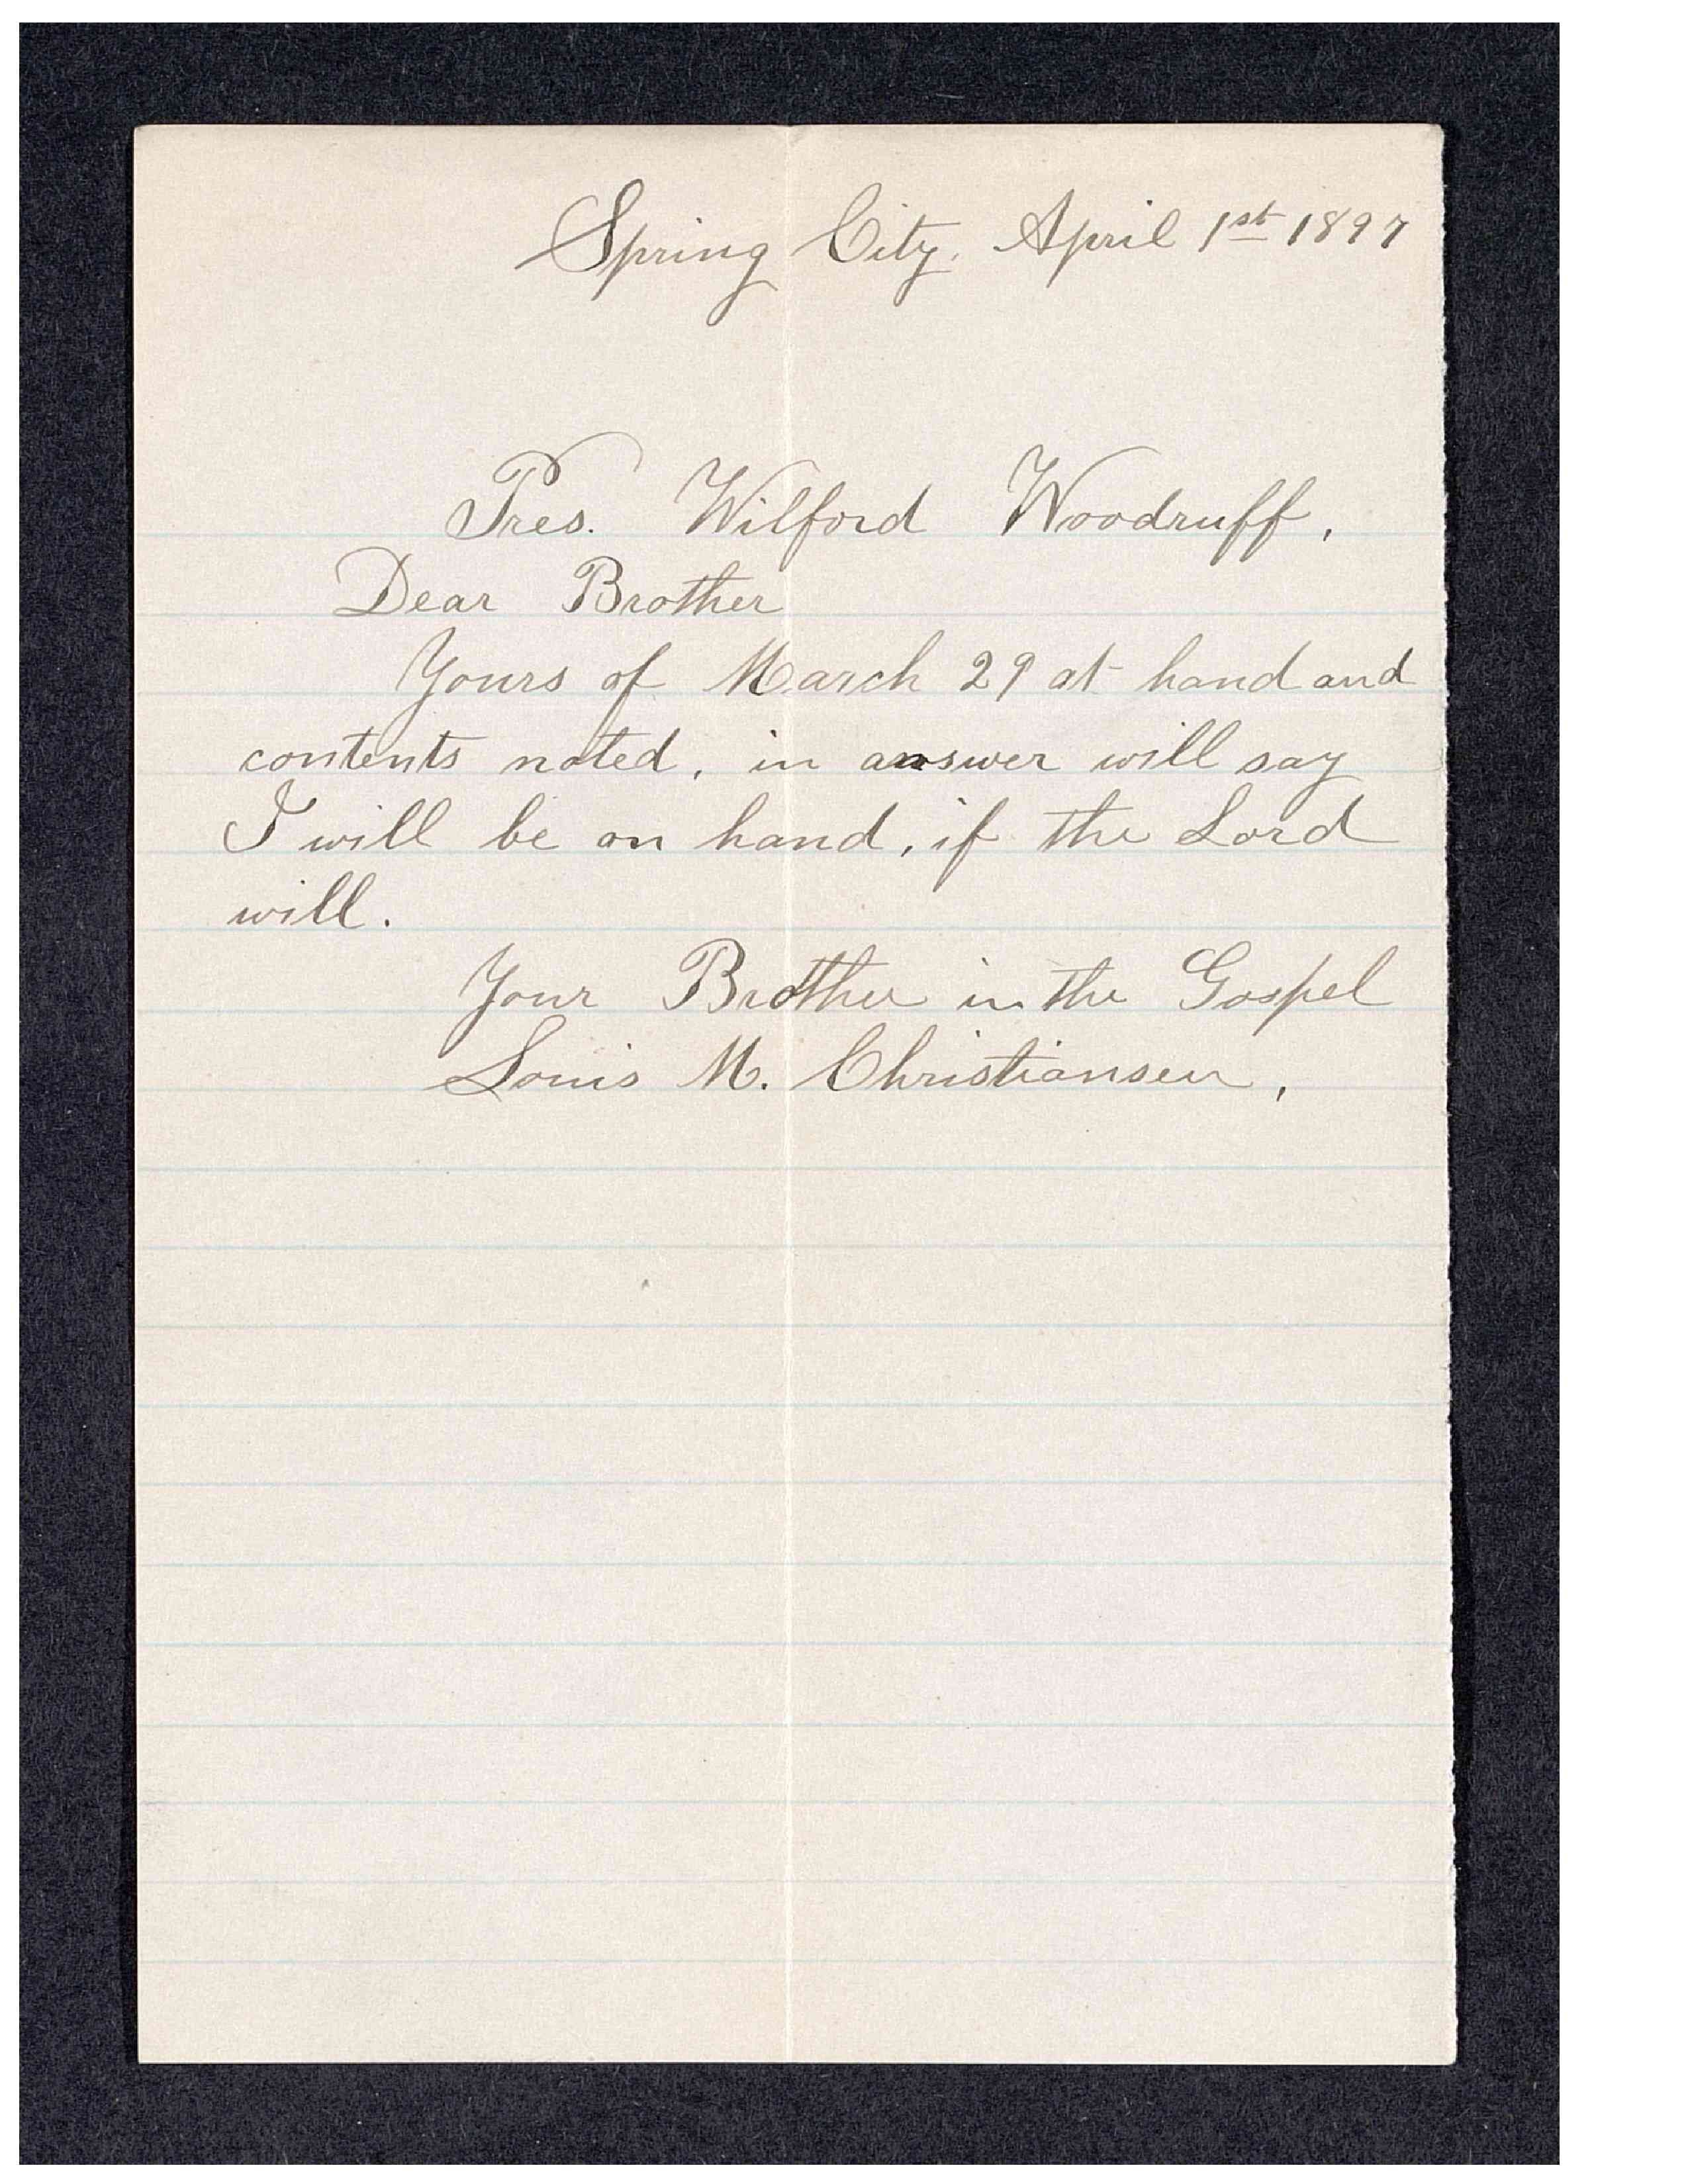 Spring City, April 1st 1897
Pres. Wilford Woodruff,
Dear Brother
Yours of March 29 at hand and
contents noted, in answer will say
I will be on hand, if the Lord
will.
Your Brother in the Gospel
Louis M. Christiansen,